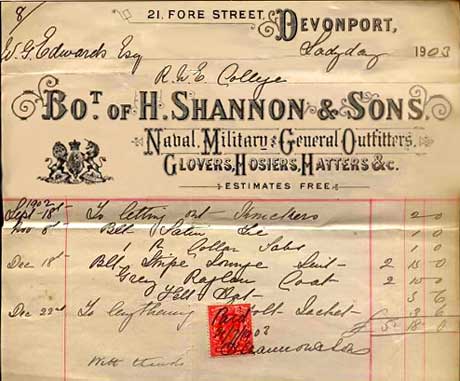 8/
21. FORE STREET,
DEVONPORT,
W. G. Edwards Esq
Ladyday 1903
R. N. E. College
BOT. OF H. SHANNON & SONS.
Naval, Military & General Outfitters,
GLOVERS, HOSIERS, HATTERS &C.
ESTIMATES FREE.
1902
Sept 18th To letting out 2 0
Nov 8th Blk Satin Tie 1 0
1 Collar Tabs 1 0
Dec 18th Blk Stripe Lounge Suit 2 15 0
Grey Raglan Coat 2 15 0
Felt Hat 3 6
Dec 22nd To lengthening Jacket 3 6
£ 5 18 0
1903
Shannon & Son
With thanks